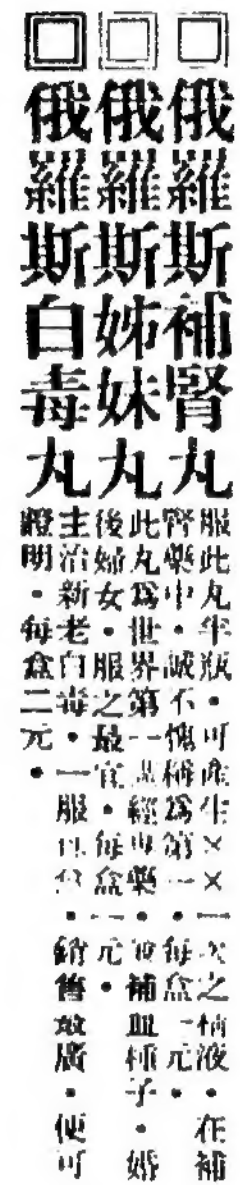 俄羅斯補腎丸
服此丸半瓶・可產生××一次之精液・在補
腎藥中・誠不愧稱爲第一・每盒一元・
俄羅斯姊妹丸
此丸爲世界第一調經專藥・補血種子・婚
後婦女・服之最宜・每盒一元・
俄羅斯白毒丸
主治新老白毒・一服・銷售廣・便可
證明・每盒二元・